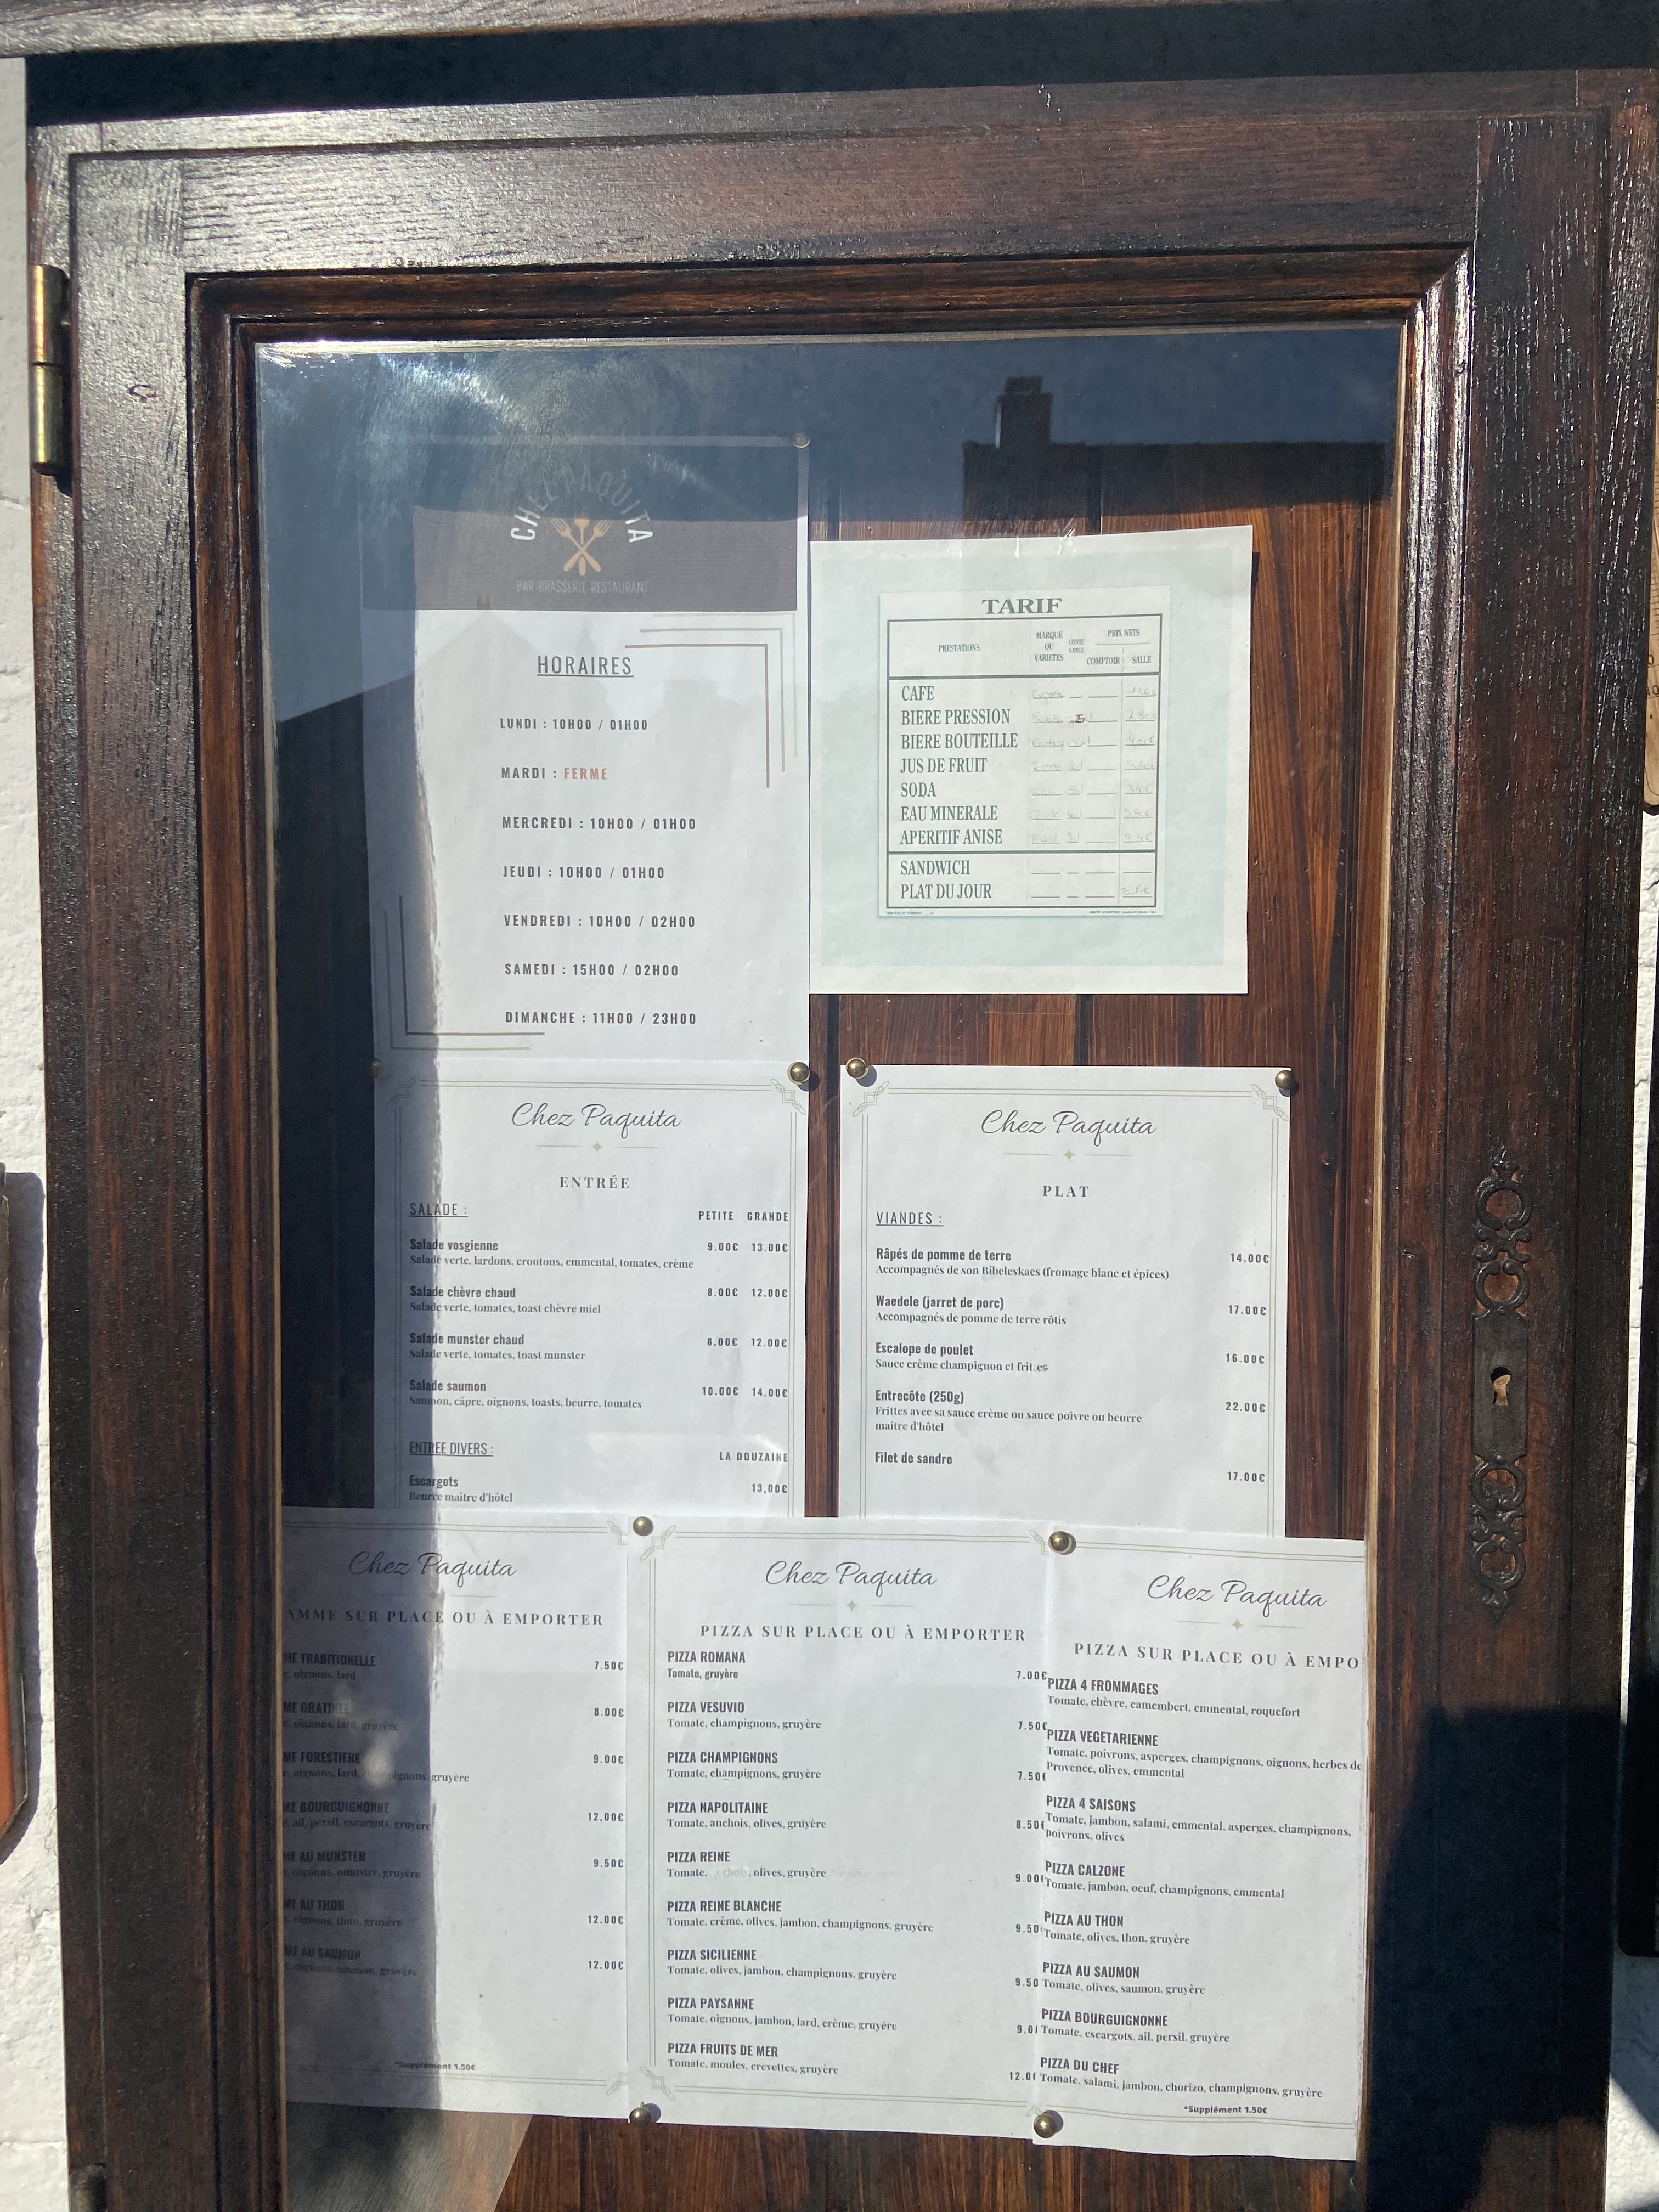 CHEZ PAQUITA
BAR-BRASSERIE-RESTAURANT
HORAIRES
LUNDI : 10H00 / 01H00
MARDI : FERME
MERCREDI : 10H00 / 01H00
JEUDI : 10H00 / 01H00
VENDREDI : 10H00 / 02H00
SAMEDI : 15H00 / 02H00
DIMANCHE : 11H00 / 23H00
TARIF
PRESTATIONS
MARQUE
OU
VARIETES
CONTE
NANCE
PRIX NETS
COMPTOIR SALLE
CAFE
BIERE PRESSION
BIERE BOUTEILLE
JUS DE FRUIT
SODA
EAU MINERALE
APERITIF ANISE
SANDWICH
PLAT DU JOUR
Chez Paquita
ENTRÉE
SALADE :
PETITE GRANDE
Salade vosgienne 9.00€ 13.00€
Salade verte, lardons, croutons, emmental, tomates, crème
Salade chèvre chaud 8.00€ 12.00€
Salade verte, tomates, toast chèvre miel
Salade munster chaud 8.00€ 12.00€
Salade verte, tomates, toast munster
Salade saumon 10.00€ 14.00€
Saumon, câpre, oignons, toasts, beurre, tomates
ENTREE DIVERS :
LA DOUZAINE
Escargots 13,00€
Beurre maitre d'hôtel
Chez Paquita
PLAT
VIANDES :
Râpés de pomme de terre 14.00€
Accompagnés de son Bibeleskaes (fromage blanc et épices)
Waedele (jarret de porc) 17.00€
Accompagnés de pomme de terre rôtis
Escalope de poulet 16.00€
Sauce crème champignon et frites
Entrecôte (250g) 22.00€
Frittes avec sa sauce crème ou sauce poivre ou beurre
maitre d'hôtel
Filet de sandre
17.00€
Chez Paquita
AMME SUR PLACE OU À EMPORTER
ME TRADITIONELLE 7.50€
e, oignons, lard
ME GRATINEE 8.00€
e, oignons, lard, gruyère
ME FORESTIERE 9.00€
e, oignons, lard, champignons, gruyère
ME BOURGUIGNONNE 12.00€
e, ail, persil, escargots, gruyère
ME AU MUNSTER 9.50€
e, oignons, munster, gruyère
ME AU THON 12.00€
e, oignons, thon, gruyère
ME AU SAUMON 12.00€
e, oignons, saumon, gruyère
*Supplément 1.50€
Chez Paquita
PIZZA SUR PLACE OU À EMPORTER
PIZZA ROMANA 7.00€
Tomate, gruyère
PIZZA VESUVIO 7.50€
Tomate, champignons, gruyère
PIZZA CHAMPIGNONS 7.50€
Tomate, champignons, gruyère
PIZZA NAPOLITAINE 8.50€
Tomate, anchois, olives, gruyère
PIZZA REINE 9.00€
Tomate, olives, gruyère
PIZZA REINE BLANCHE 9.50
Tomate, crème, olives, jambon, champignons, gruyère
PIZZA SICILIENNE 9.50
Tomate, olives, jambon, champignons, gruyère
PIZZA PAYSANNE 9.0
Tomate, oignons, jambon, lard, crème, gruyère
PIZZA FRUITS DE MER 12.0
Tomate, moules, crevettes, gruyère
Chez Paquita
PIZZA SUR PLACE OU À EMPO
PIZZA 4 FROMMAGES
Tomate, chèvre, camembert, emmental, roquefort
PIZZA VEGETARIENNE
Tomate, poivrons, asperges, champignons, oignons, herbes de
Provence, olives, emmental
PIZZA 4 SAISONS
Tomate, jambon, salami, emmental, asperges, champignons,
poivrons, olives
PIZZA CALZONE
Tomate, jambon, oeuf, champignons, emmental
PIZZA AU THON
Tomate, olives, thon, gruyère
PIZZA AU SAUMON
Tomate, olives, saumon, gruyère
PIZZA BOURGUIGNONNE
Tomate, escargots, ail, persil, gruyère
PIZZA DU CHEF
Tomate, salami, jambon, chorizo, champignons, gruyère
*Supplément 1.50€